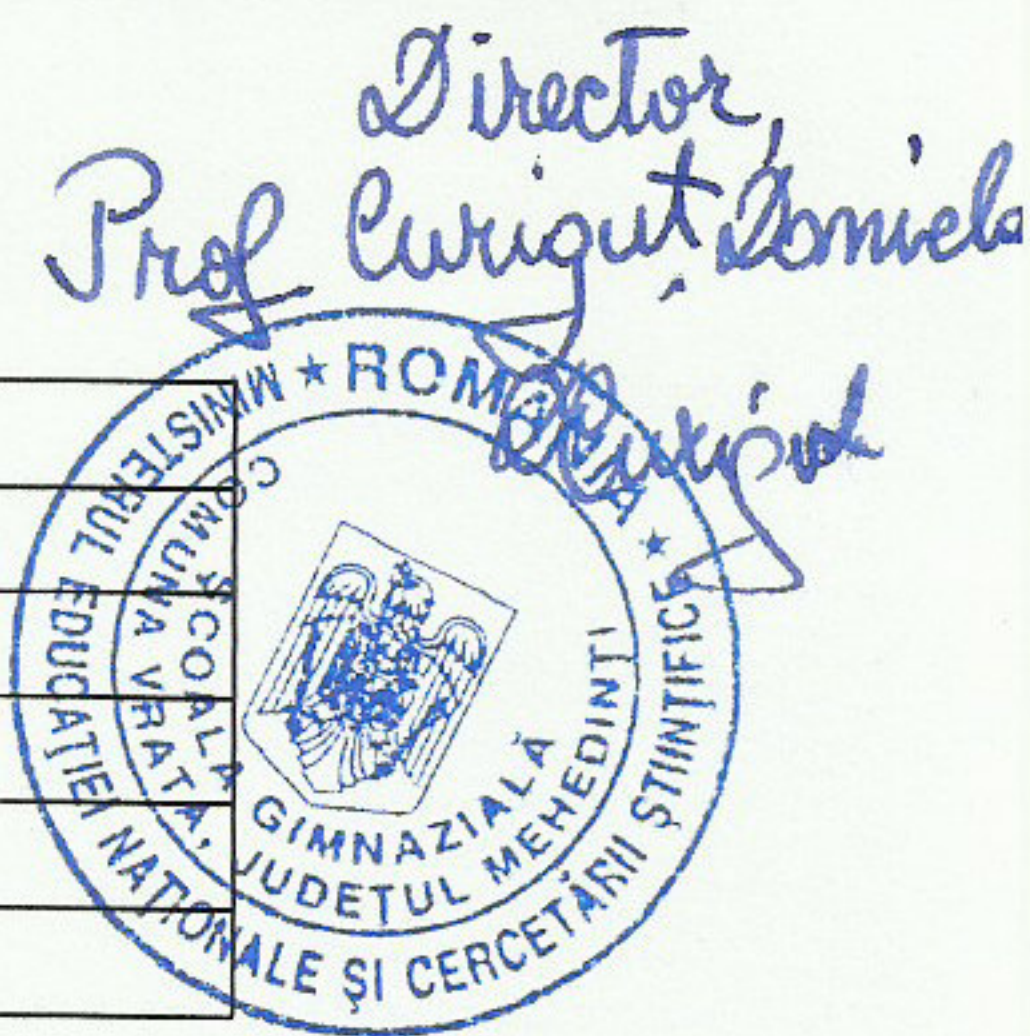 Director,
Prof Curiguț Daniela
Curiguț
★ ROMÂNIA ★
MINISTERUL EDUCAȚIEI NAȚIONALE ȘI CERCETĂRII ȘTIINȚIFICE
ȘCOALA GIMNAZIALĂ
COMUNA VRATA, JUDEȚUL MEHEDINȚI